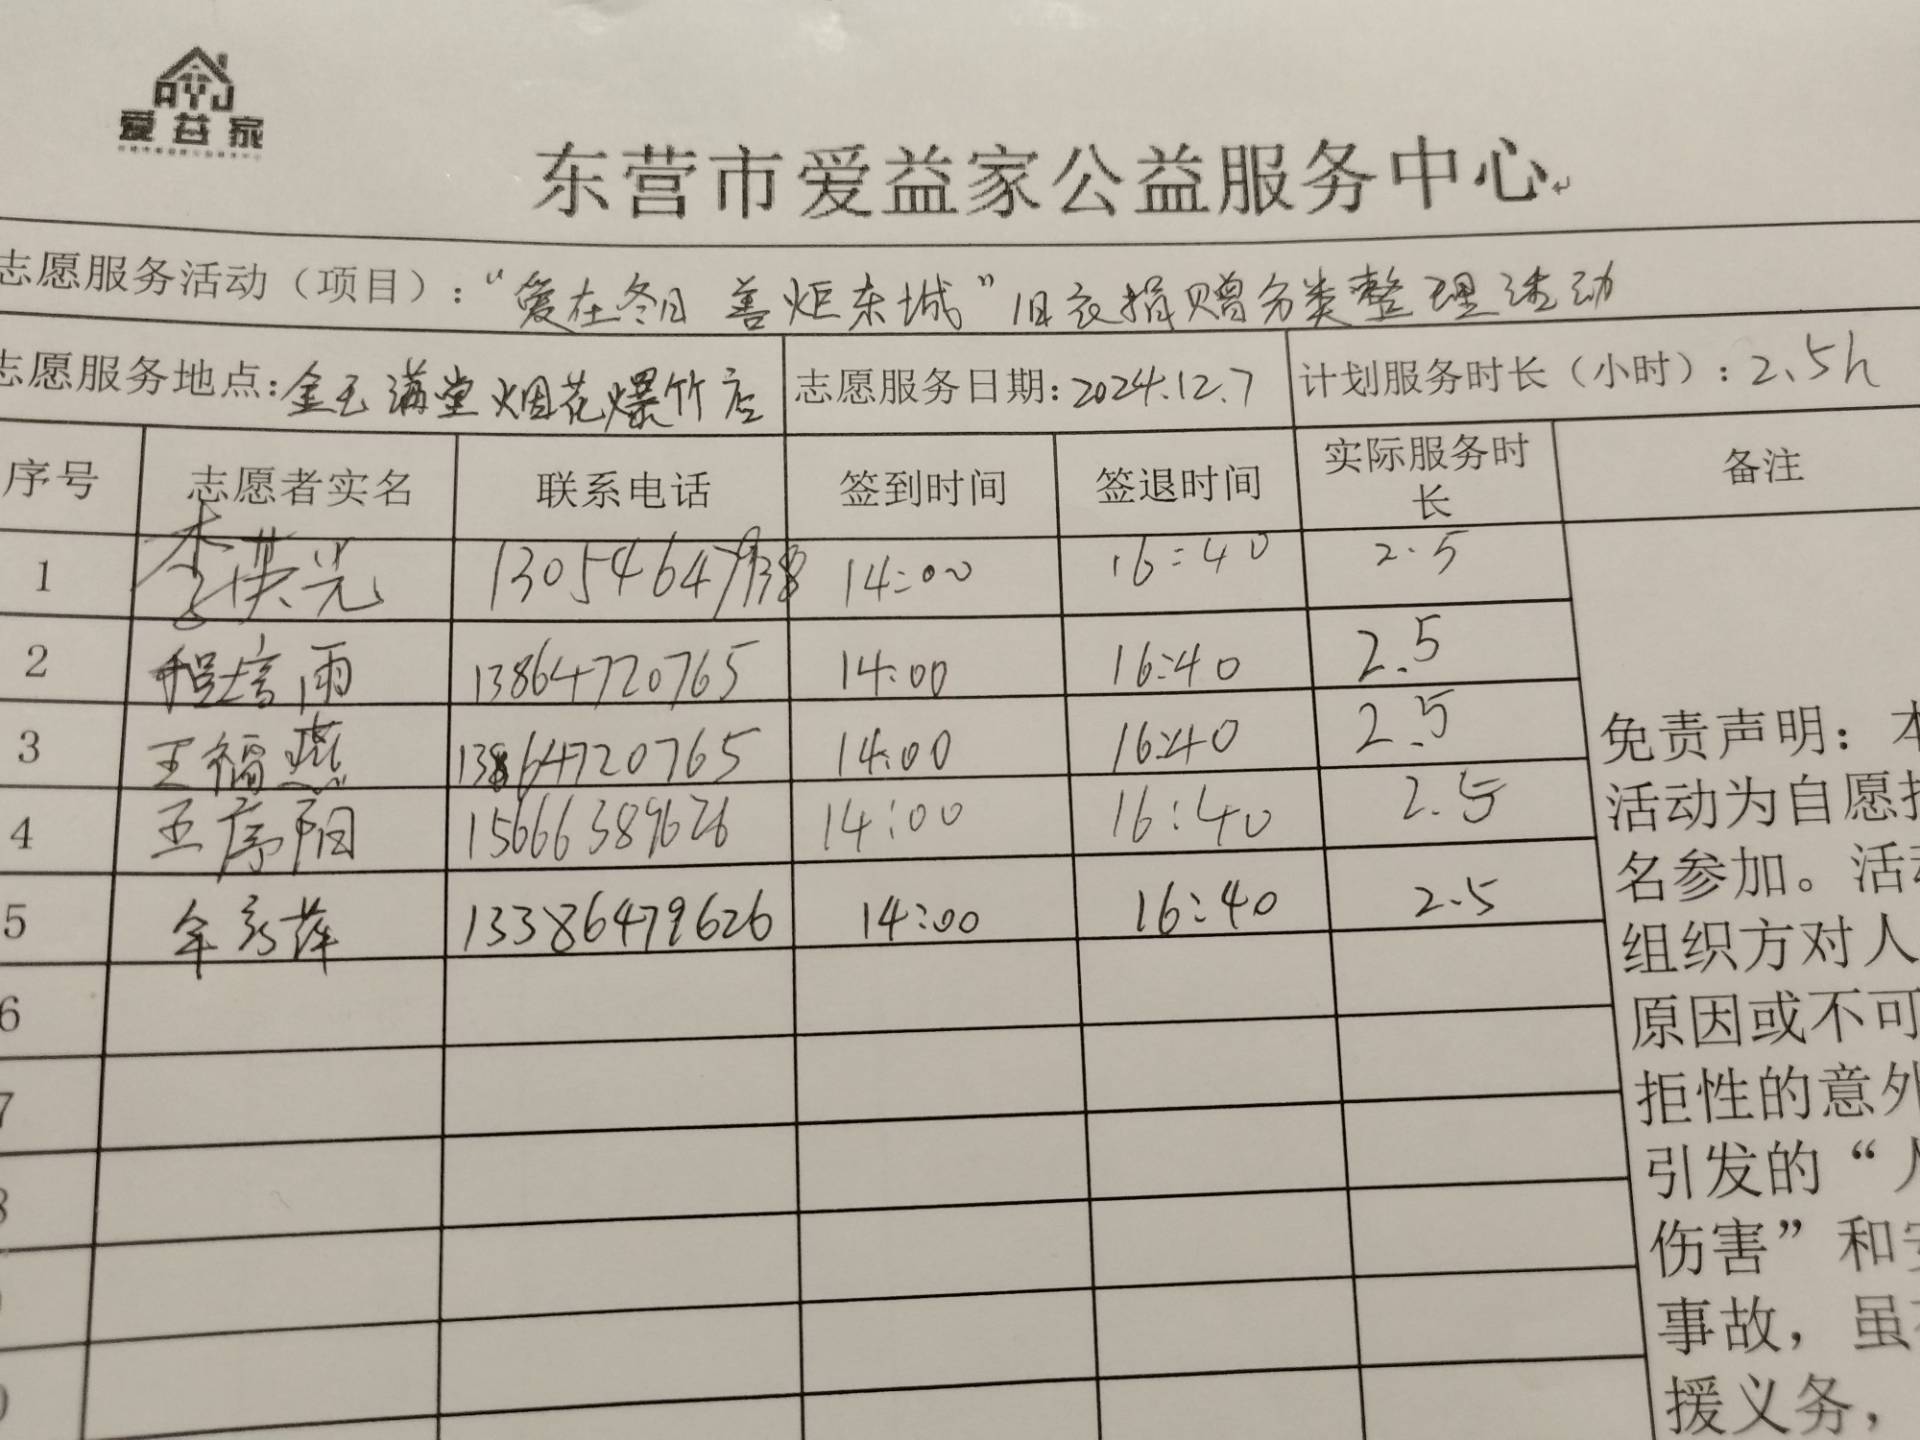 爱益家
东营市爱益家公益服务中心
志愿服务活动（项目）：“爱在冬日 善炬东城”旧衣捐赠分类整理活动
志愿服务地点：金玉满堂烟花爆竹店 志愿服务日期：2024.12.7 计划服务时长（小时）：2.5h
序号 志愿者实名 联系电话 签到时间 签退时间 实际服务时长 备注
1 李洪光 13054647938 14:00 16:40 2.5
2 程培雨 13864720765 14:00 16:40 2.5
3 王福燕 13864720765 14:00 16:40 2.5
4 王序阳 15666389626 14:00 16:40 2.5
5 13386479626 14:00 16:40 2.5
6
7
8
免责声明：本
活动为自愿报
名参加。活动
组织方对人
原因或不可
拒性的意外
引发的“人
伤害”和安
事故，虽
援义务，